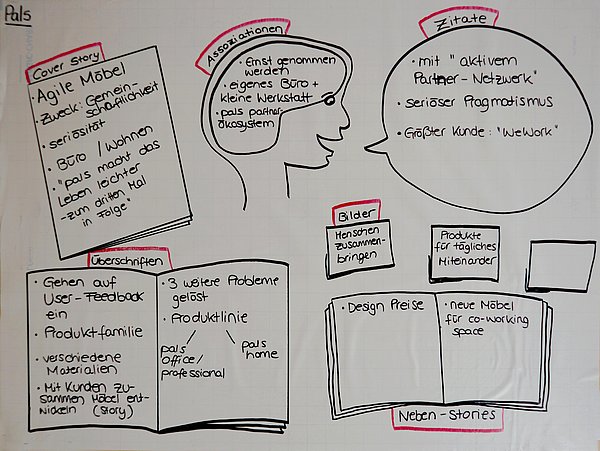 Pals
Cover Story
• Agile Möbel
• Zweck: Gemein-
schaftlichkeit
• seriösität
• Büro / Wohnen
• "pals macht das
Leben leichter
- zum dritten Mal
in Folge"
Assoziationen
• Ernst genommen
werden
• eigenes Büro +
kleine Werkstatt
• pals partner-
ökosystem
Zitate
• mit "aktivem
Partner-Netzwerk"
• seriöser Pragmatismus
• Größter Kunde: "WeWork"
Bilder
Menschen
zusammen-
bringen
Produkte
für tägliches
Miteinander
Überschriften
• Gehen auf
User-Feedback
ein
• Produktfamilie
• verschiedene
Materialien
• Mit Kunden zu-
sammen Möbel ent-
wickeln (Story)
• 3 weitere Probleme
gelöst
• Produktlinie
pals
office/
professional
pals
home
• Design Preise
• neue Möbel
für co-working
space
Neben-Stories